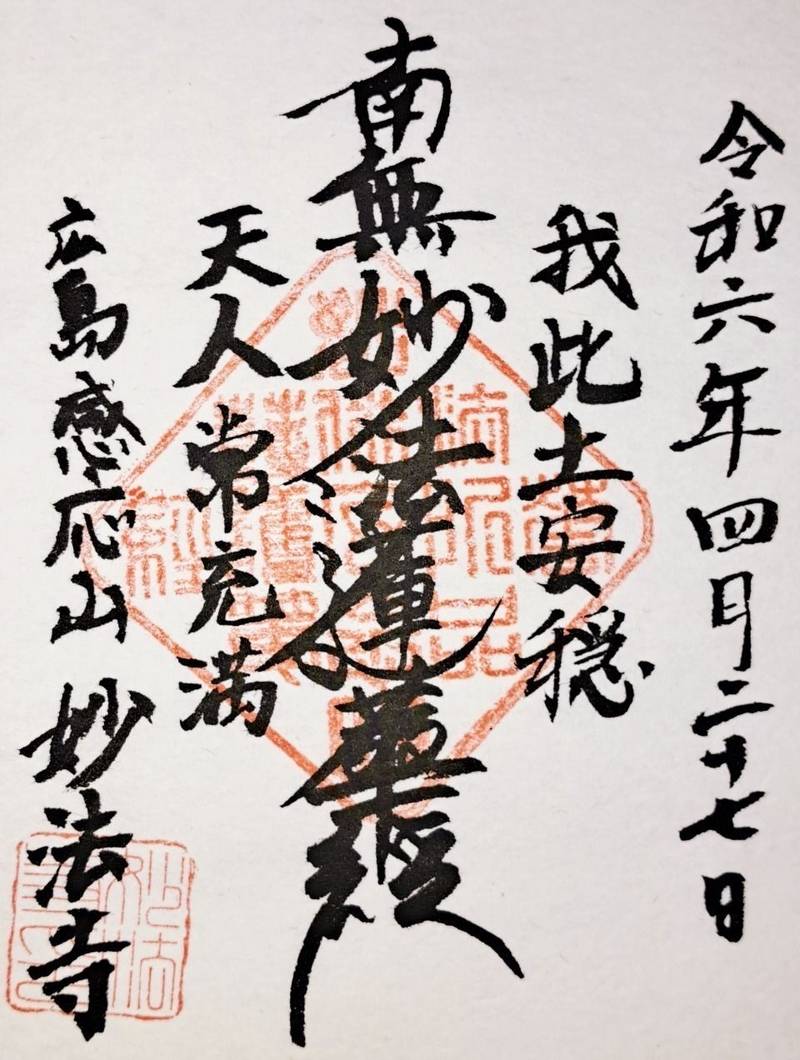 令和六年四月二十七日
我此土安穏
南無妙法蓮華経
天人常充満
広島感応山 妙法寺